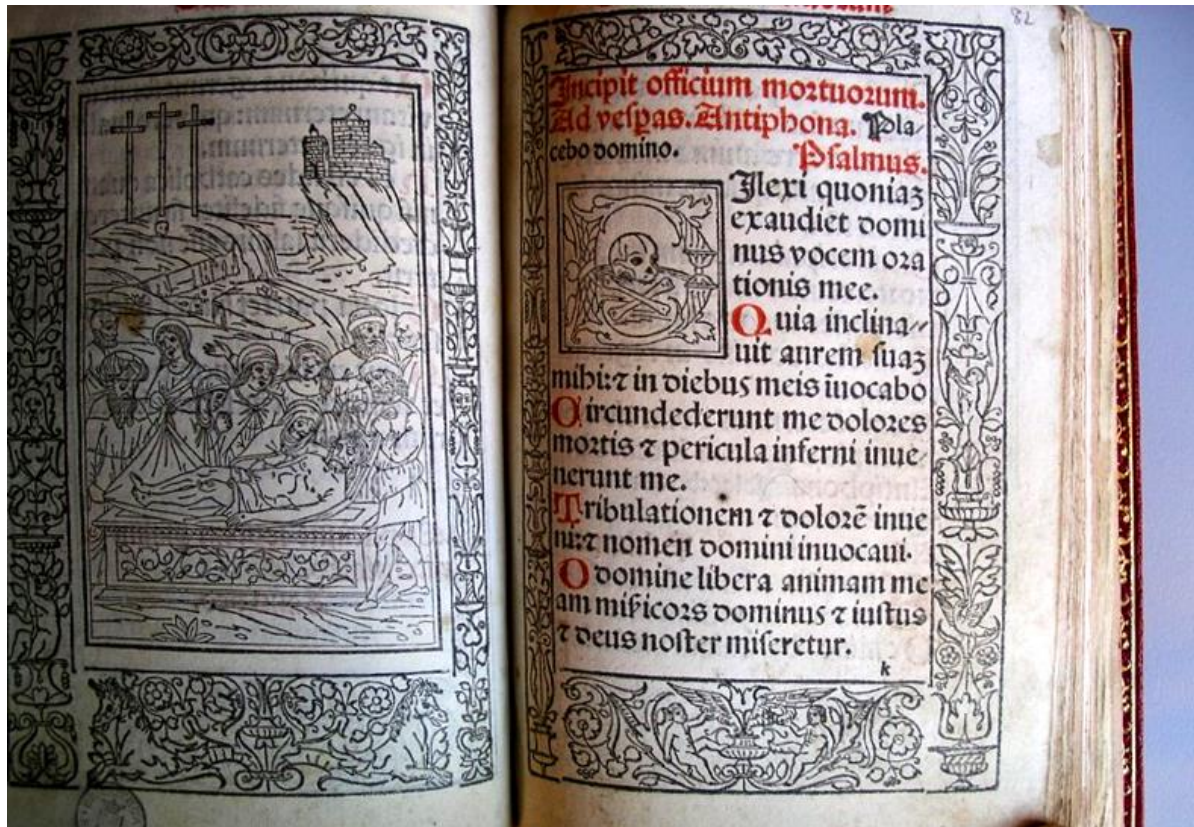 82
Incipit officium mortuorum.
Ad vesp̱as. Antiphona. Pla-
cebo domino. Psalmus.
Ilexi quoniaʒ
exaudiet domi
nus vocem ora
tionis mee.
Quia inclina-
uit aurem suaʒ
mihi: ⁊ in diebus meis īuocabo
Circundederunt me dolores
mortis ⁊ pericula inferni inue-
nerunt me.
Tribulationem ⁊ dolorē inue
ni: ⁊ nomen domini inuocaui.
O domine libera animam me
am mis̄icors dominus ⁊ iustus
⁊ deus noster miseretur.
k